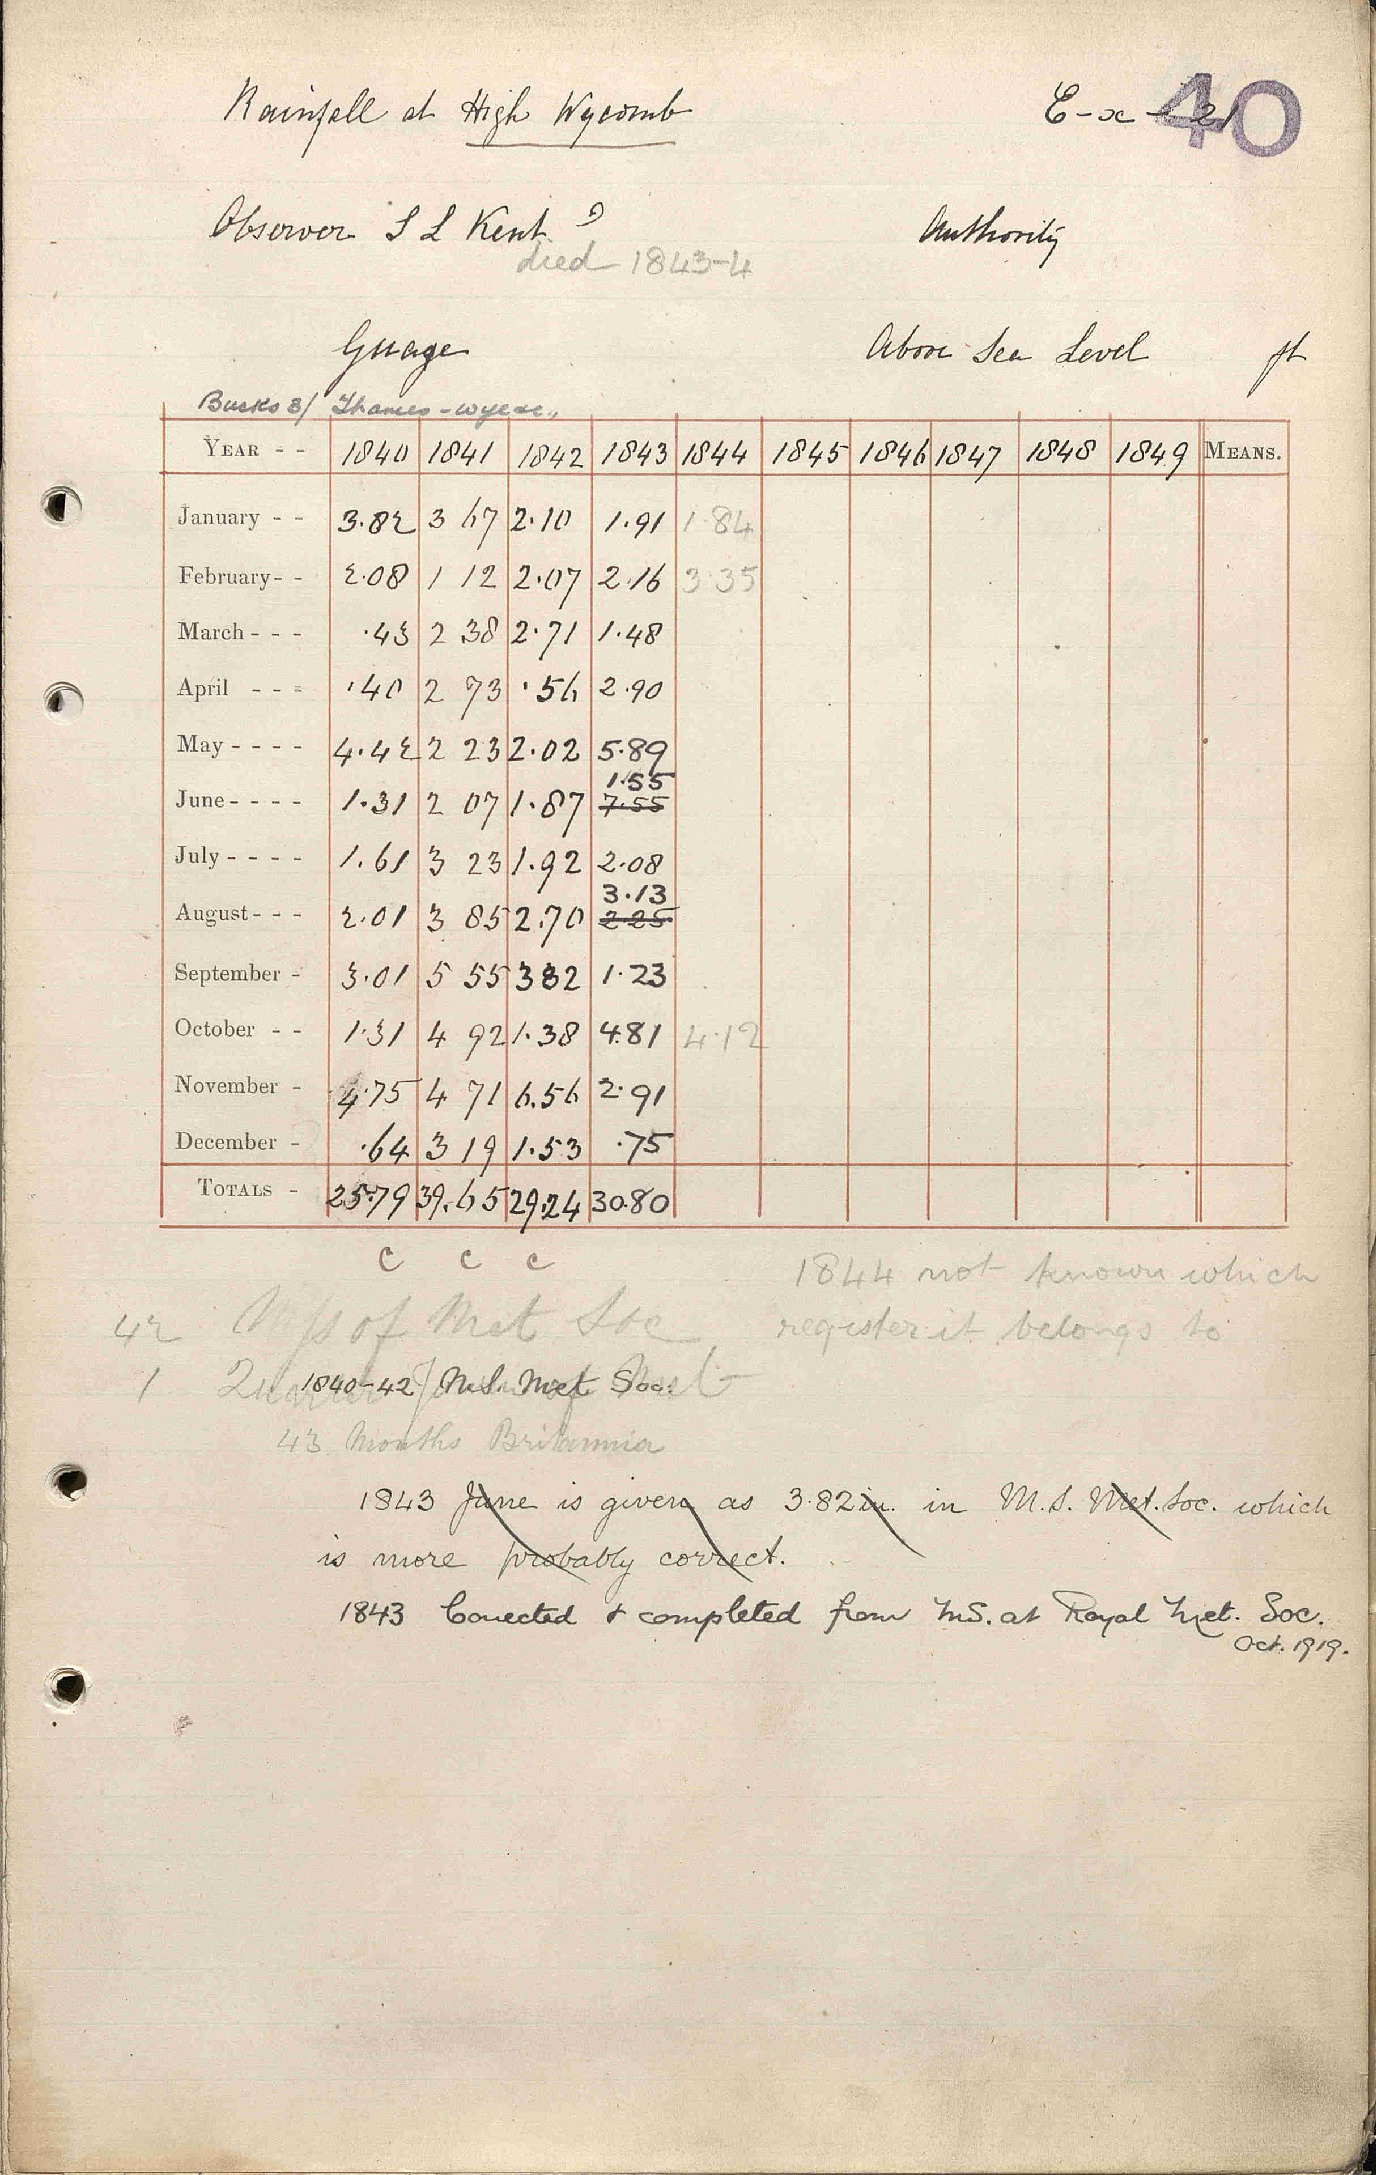 Rainfall at High Wycomb
E-x-21
40
Observer S L Kent ?
Authority
died 1843-4
Guage
Above Sea Level ft
Bucks 3/ Thames - Wye
YEAR - - 1840 1841 1842 1843 1844 1845 1846 1847 1848 1849 MEANS.
January - - 3.82 3 67 2.10 1.91 1.84
February - - 2.08 1 12 2.07 2.16 3.35
March - - - .43 2 38 2.71 1.48
April - - - .40 2 73 .56 2.90
May - - - - 4.42 2 23 2.02 5.89
1.55
June - - - - 1.31 2 07 1.87 7.55
July - - - - 1.61 3 23 1.92 2.08
3.13
August - - - 2.01 3 85 2.70 2.25
September - 3.01 5 55 3 82 1.23
October - - 1.31 4 92 1.38 4.81 4.12
November - 4.75 4 71 6.56 2.91
December - .64 3 19 1.53 .75
TOTALS - 25.79 39.65 29.24 30.80
c c c
1844 not known which
register it belongs to
42 Mss of Met Soc
1
1840-42 M.S. Met Soc.
43 Months Britannia
1843 June is given as 3.82 in. in M.S. Met. Soc. which
is more probably correct.
1843 Corrected & completed from MS. at Royal Met. Soc.
Oct. 1919.